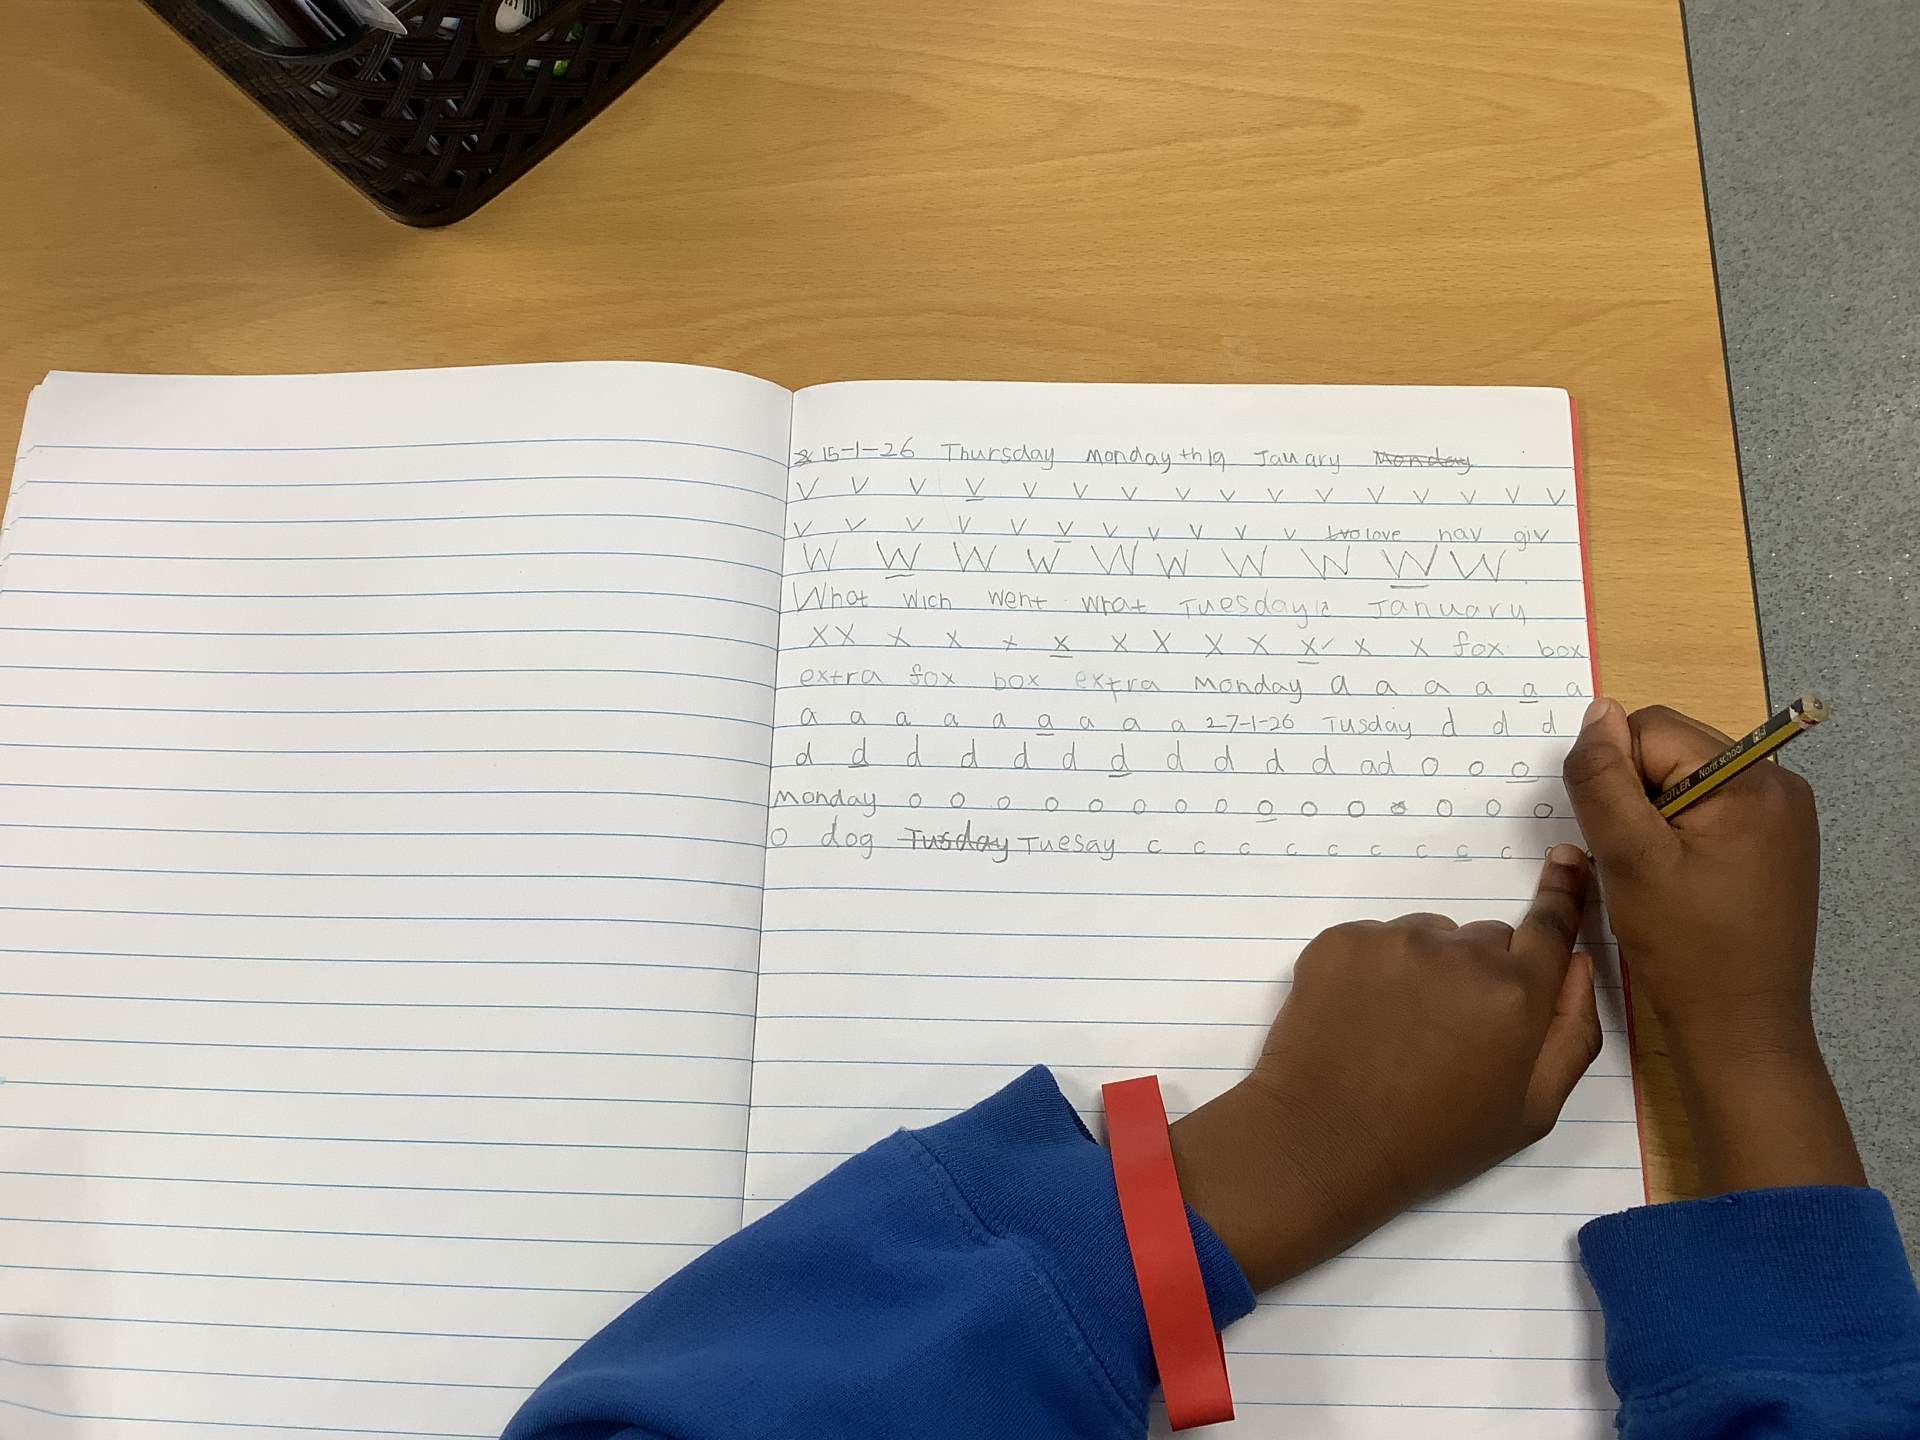 15-1-26 Thursday monday th19 January Monday
v v v v v v v v v v v v v v v v
v v v v v v v v v v v love hav giv
W W W W W W W W W W
What wich went what Tuesday January
x x x x x x x x x x x x x fox box
extra fox box extra Monday a a a a a a
a a a a a a a a a 27-1-26 Tusday d d d
d d d d d d d d d d d d ad o o o
monday o o o o o o o o o o o o o o
o dog Tusday Tuesay c c c c c c c c c
STAEDTLER Noris school HB